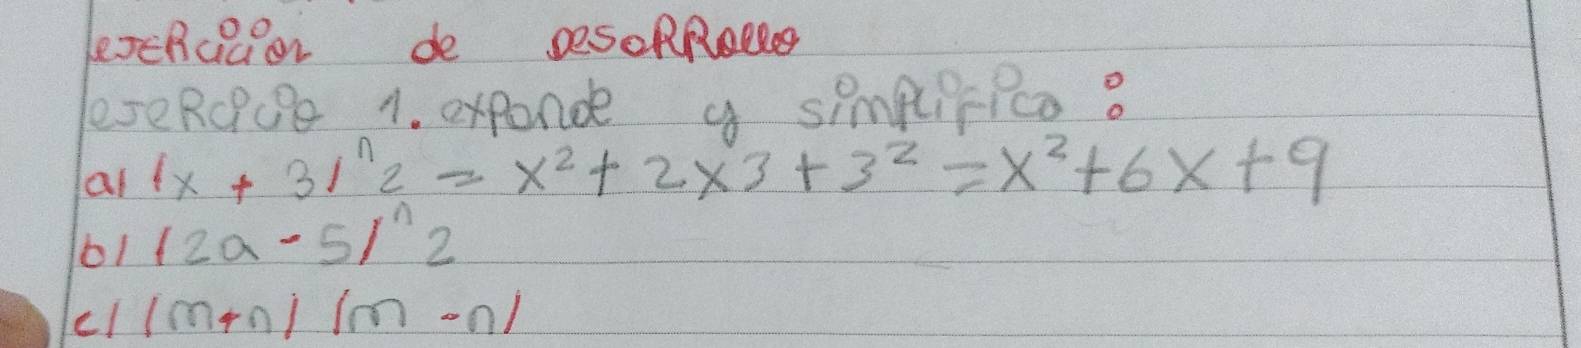 exercicior de desarrollo
exercicio 1. expande y simplifica :
a) (x + 3)^2 = x² + 2x3 + 3² = x² + 6x + 9
b) (2a - 5)^2
c) (m+n) (m - n)